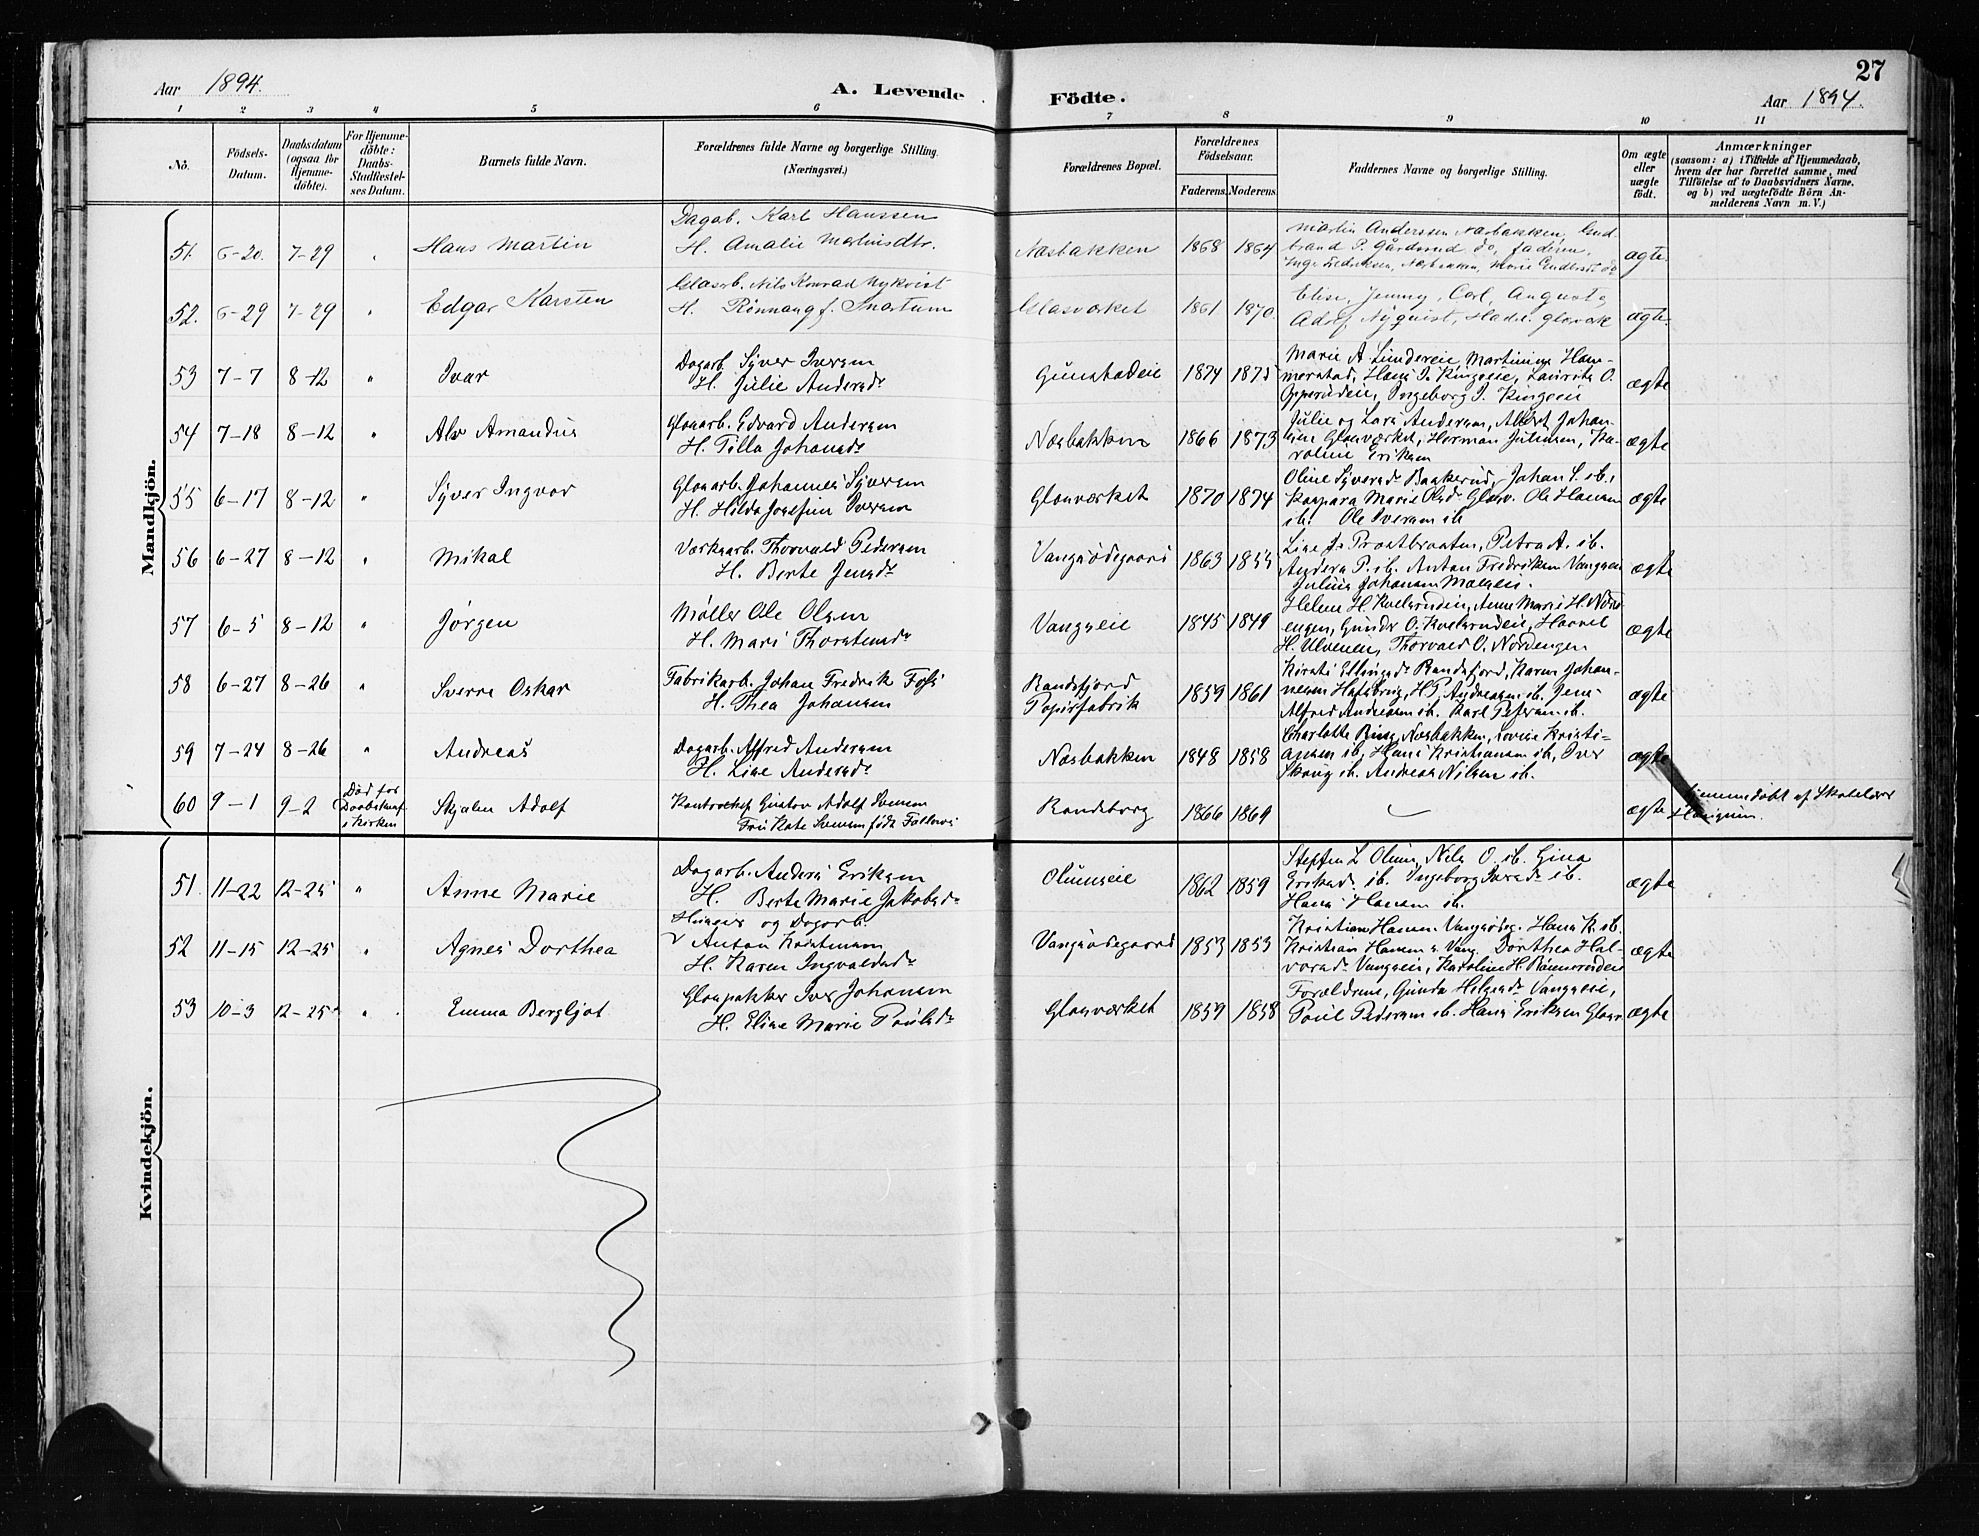 27
Aar 1894.
A. Levende
Födte.
Aar 1894.
1 2 3 4 5 6 7 8 9 10 11
No.
Födsels-
Datum.
Daabsdatum
(ogsaa for
Hjemme-
döbte).
For Hjemme-
döbte:
Daabs-
Stadfæstel-
ses Datum.
Barnets fulde Navn.
Forældrenes fulde Navne og borgerlige Stilling.
(Næringsvei.)
Forældrenes Bopæl.
Forældrenes
Födselsaar.
Faderens. Moderens.
Faddernes Navne og borgerlige Stilling.
Om ægte
eller
uægte
født.
Anmærkninger
(saasom: a) i Tilfælde af Hjemmedaab,
hvem der har forrettet samme, med
Tilföielse af to Daabsvidners Navne,
og b) ved uægtefödte Börn An-
melderens Navn m. V.)
Mandkjön.
51. 6-20. 7-29 " Hans Martin
Dagab. Karl Hanssen
H. Amalie Martinisdtr.
Næsbakken 1868 1864
Martin Anderssen Næsbakken, Gud
brand P. Gårdsrud do, faderen,
Inge Fredriksen, Næsbakken, Marie
ægte.
52. 6-29 7-29 " Edgar Karsten
Glasarb. Nils Konrad Nykvist
H. Rönnaug f. Snartum
Glasværket 1861 1870.
Elise, Jenny, Carl, August &
Adolf Nyquist, Hadel. glasværk
ægte.
53 7-7 8-12 " Ivar
Dagarb. Syver Iversen
H. Julie Andersdr
Gunstadeie 1874 1875
Marie A. Lundereie, Martinius Ham-
merstad, Hans J. Kingseie, Laurits O.
Opperudeie, Ingeborg J. Kingseie
ægte
54 7-18 8-12 " Alv Amandus
Glasarb. Edvard Andersen
H. Tilla Johansdr
Næsbakken 1866 1873
Julie og Lars Andersen, Albert Johan-
sen Glasværket, Herman Juliussen, Ka-
roline Eriksen
ægte
55 6-17 8-12 " Syver Ingvar
Glasarb. Johannes Syversen
H. Hilda Josefine Iversen
Glasværket 1870 1874
Oline Syversdr Bakkerud, Johan S. ib.,
Kaspara Marie Olsdr Glasv. Ole Hansen
ib. Ole Iversen ib
ægte
56 6-27 8-12 " Mikal
Værksarb. Thorvald Pedersen
H. Berte Jensdr
Vangsödegaard 1863 1855
Lise J. Prestbraaten, Petra A. ib.
Anders P. ib. Anton Fredriksen Vangseie
Julius Johansen Moeseie.
ægte
57 6-5 8-12 " Jørgen
Møller Ole Olsen
H. Mari Thorstensdr
Vangseie 1845 1849
Helene H. Kvelsrudeie, Anne Marie H. Norд-
engen, Gunder O. Kvelsrudeie, Haavel
H. Ulvenen, Thorvald O. Nordengen
ægte
58 6-27 8-26 " Sverre Oskar
Fabrikarb. Johan Fredrik Foss
H. Thea Johansen
Randsfjord
Papirfabrik
1859 1861
Kirsti Ellingsdr Randsfjord, Karen Johan-
nesen Hofsbrug, H P. Andreasen ib. Jens
Alfred Andreasen ib. Karl Petersen ib.
ægte
59 7-24 8-26 " Andreas
Dagarb. Alfred Andersen
H. Lise Andersdr
Næsbakken 1848 1858
Charlotte Ring Næsbakken, Lovise Kristi-
ansen ib, Hans Kristiansen ib, Iver
Skoug ib. Andreas Nilsen ib.
ægte
60 9-1 9-2
Død før
Daabstadf.
i Kirken
Skjalm Adolf
Kontorchef Gustav Adolf Svensen
Fru Kate Svensen født Fallows
Randsborg 1866 1869
ægte
Hjemmedøbt af Skolelærer
Haugnum.
Kvindekjön.
51. 11-22 12-25 " Anne Marie
Dagarb. Anders Eriksen
H. Berte Marie Jakobsdr
Olumseie 1862 1859
Steffen L Olum, Nils O. ib. Gina
Eriksdr ib. Ingeborg Iversdr ib.
Hans Hansen ib.
ægte
52 11-15 12-25 " Agnes Dorthea
Huseier og Dagarb.
Anton Kristensen
H. Karen Ingvaldsdr
Vangsödegaard 1853 1853
Kristiane Hansen Vangsødeg. Hans K. ib.
Kristian Hansen s. Vang Dorthea Hal-
vorsdr Vangseie, Karoline H. Rønnerudeie
ægte
53 10-3 12-25 " Emma Bergljot
Glaspakker Iver Johansen
H. Eline Marie Paulsdr
Glasværket 1859 1858
Forældrene, Gunda Helgesdr Vangseie,
Poul Pedersen ib. Hans Eriksen Glasv.
ægte